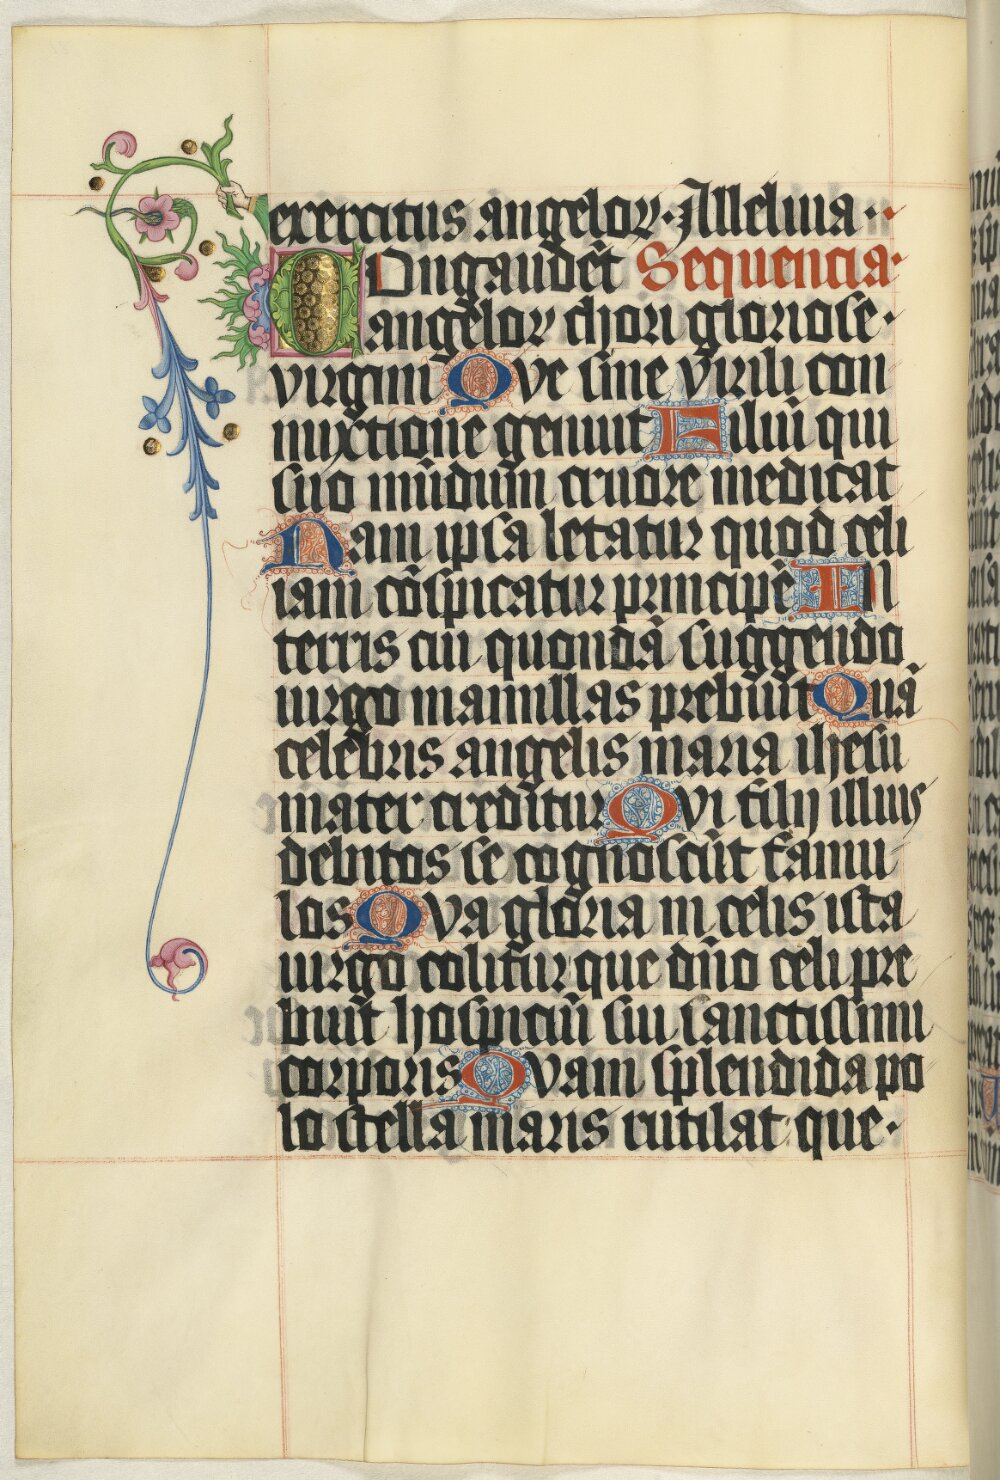 exercitus angeloꝝ· Alleluia··
COngaudēt Sequencia·
angeloꝝ chori gloriose·
virgini QVe sine virili con
mixtione genuit Filiū qui
suo mūdum cruore medicat
Nam ipsa letatur quod celi
iam cōspicatur principē In
terris cui quondā suggendo
uirgo mamillas prebuit Quā
celebris angelis maria ihesu
mater creditur QVi filij illius
debitos se cognoscūt famu
los QVa gloria in celis ista
uirgo colitur que dño celi pre
buit hospiciū sui sanctissimi
corporis QVam splendida po
lo stella maris rutilat que·